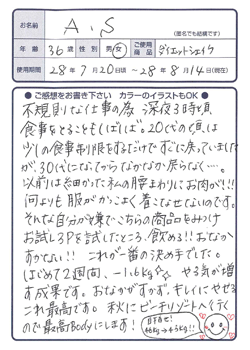 お名前
A.S
(匿名でも結構です)
年齢 36才 性別 男・女 ご使用商品 ダイエットシェイク
使用期間 28年7月20日頃〜28年8月14日(現在)
●ご感想をお書き下さい カラーのイラストもOK●
不規則な仕事の為、深夜3時頃
食事をとることもしばしば。20代の頃は
少しの食事制限をするだけですぐに戻っていました
が、30代になってからなかなか戻らなく…。
以前は細かったハズの腰まわりにお肉が!!!
何よりも服がかっこよく着こなせないのです。
そんな自分が嫌でこちらの商品をみつけ
お試し3Pを試したところ、飲める!!おなか
すかない!! これが一番の決め手でした。
はじめて2週間、-1.6kg☆ やる気が増
す成果です。おなかがすかず、キレイにやせる
これ最高です。秋にビーチリゾートへ行く
ので最高Bodyにします!
目指せ!
46kg→43kg!!